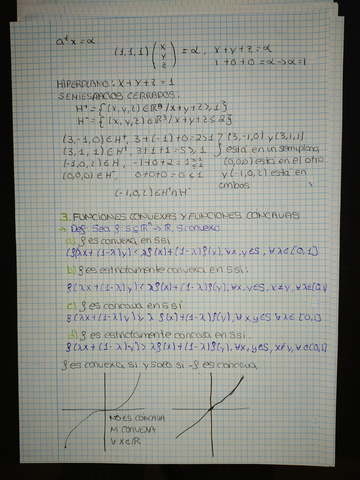 aᵗx = α
(1,1,1) (x y z) = α, x+y+z = α
1+0+0 = α → α = 1
HIPERPLANO: x+y+z = 1
SEMIESPACIOS CERRADOS:
H⁺ = {(x,y,z) ∈ ℝ³ / x+y+z ≥ 1}
H⁻ = {(x,y,z) ∈ ℝ³ / x+y+z ≤ 2}
(3,-1,0) ∈ H⁺, 3+(-1)+0 = 2 ≥ 1 (3,-1,0) y (3,1,1)
(3,1,1) ∈ H⁺, 3+1+1 = 5 ≥ 1 están en un semiplano,
(-1,0,2) ∈ H, -1+0+2 = 1 ≥ 1 ≤ 1 (0,0,0) esta en el otro
(0,0,0) ∈ H⁻, 0+0+0 = 0 ≤ 1 y (-1,0,2) esta en
ambos
(-1,0,2) ∈ H⁺∩H⁻
3. FUNCIONES CONVEXAS Y FUNCIONES CÓNCAVAS
→ Def: Sea f: S ⊆ ℝⁿ → ℝ, S convexo
a) f es convexa en S si:
f(λx + (1-λ)y) ≤ λf(x) + (1-λ)f(y), ∀x,y∈S, ∀λ∈[0,1]
b) f es estrictamente convexa en S si:
f(λx + (1-λ)y) < λf(x) + (1-λ)f(y), ∀x,y∈S, x≠y, ∀λ∈(0,1)
c) f es concava en S si
f(λx + (1-λ)y) ≥ λ f(x) + (1-λ)f(y), ∀x,y∈S ∀λ∈[0,1]
d) f es estrictamente concava en S si
f(λx + (1-λ)y) > λf(x) + (1-λ)f(y), ∀x,y∈S, x≠y, ∀∈(0,1)
f es convexa si y solo si -f es concava
NO ES CÓNCAVA
NI CONVEXA
∀x∈ℝ